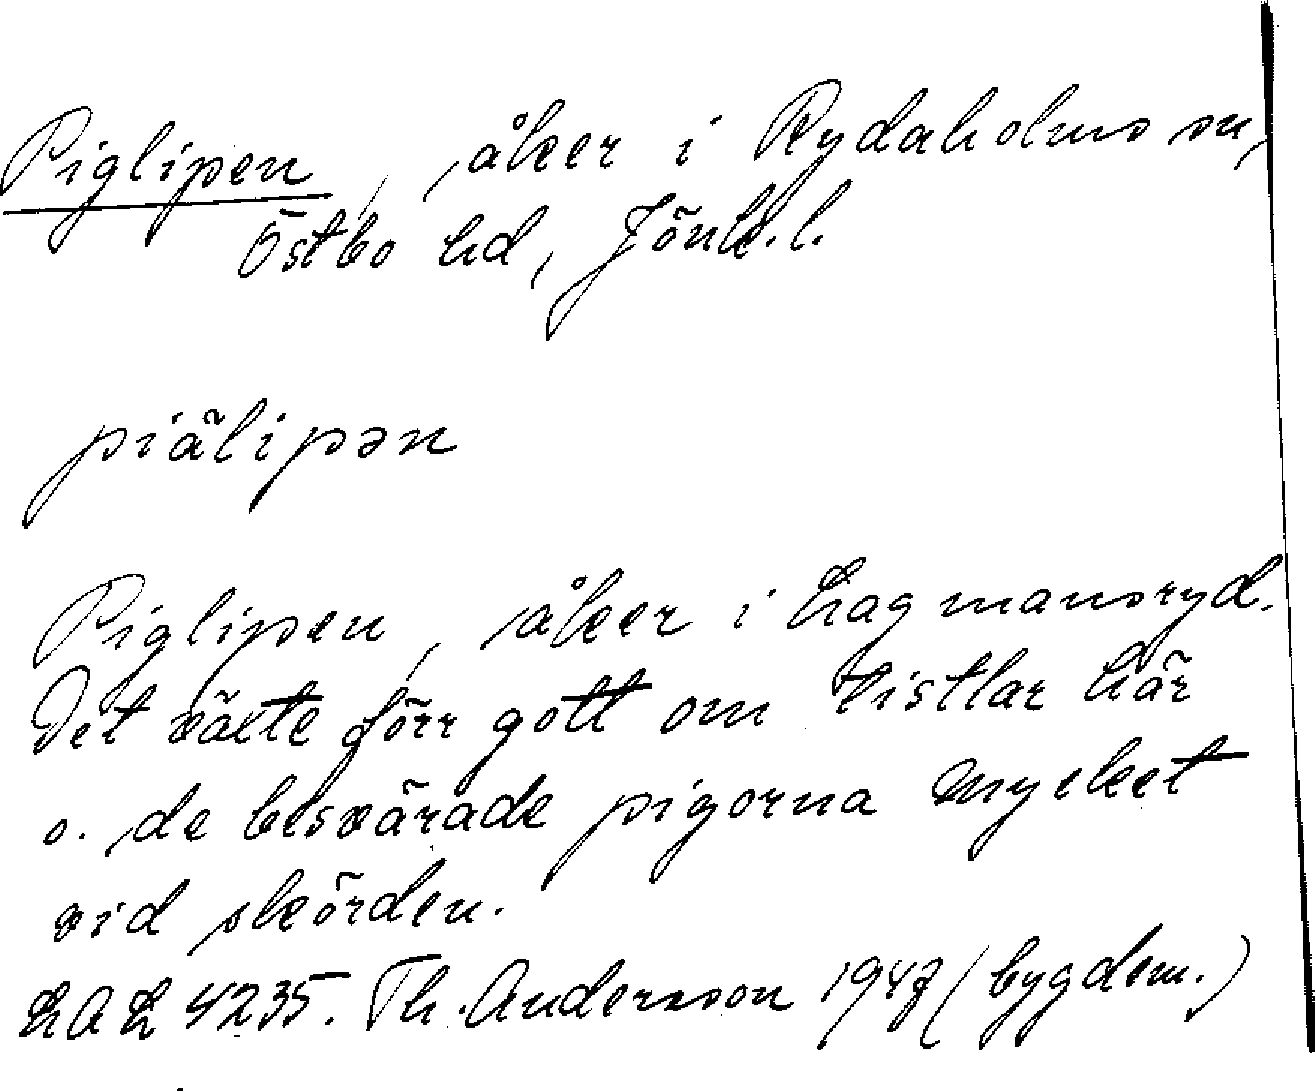 Piglipen, åker i Rydaholms sn,
Östbo hd, Jönk.l.
piälipən
Piglipen, åker i Hagmansryd.
Det växte förr gott om tistlar här
o. de besvärade pigorna mycket
vid skörden.
LAL 4235. Th. Andersson 1947 (bygdem.)